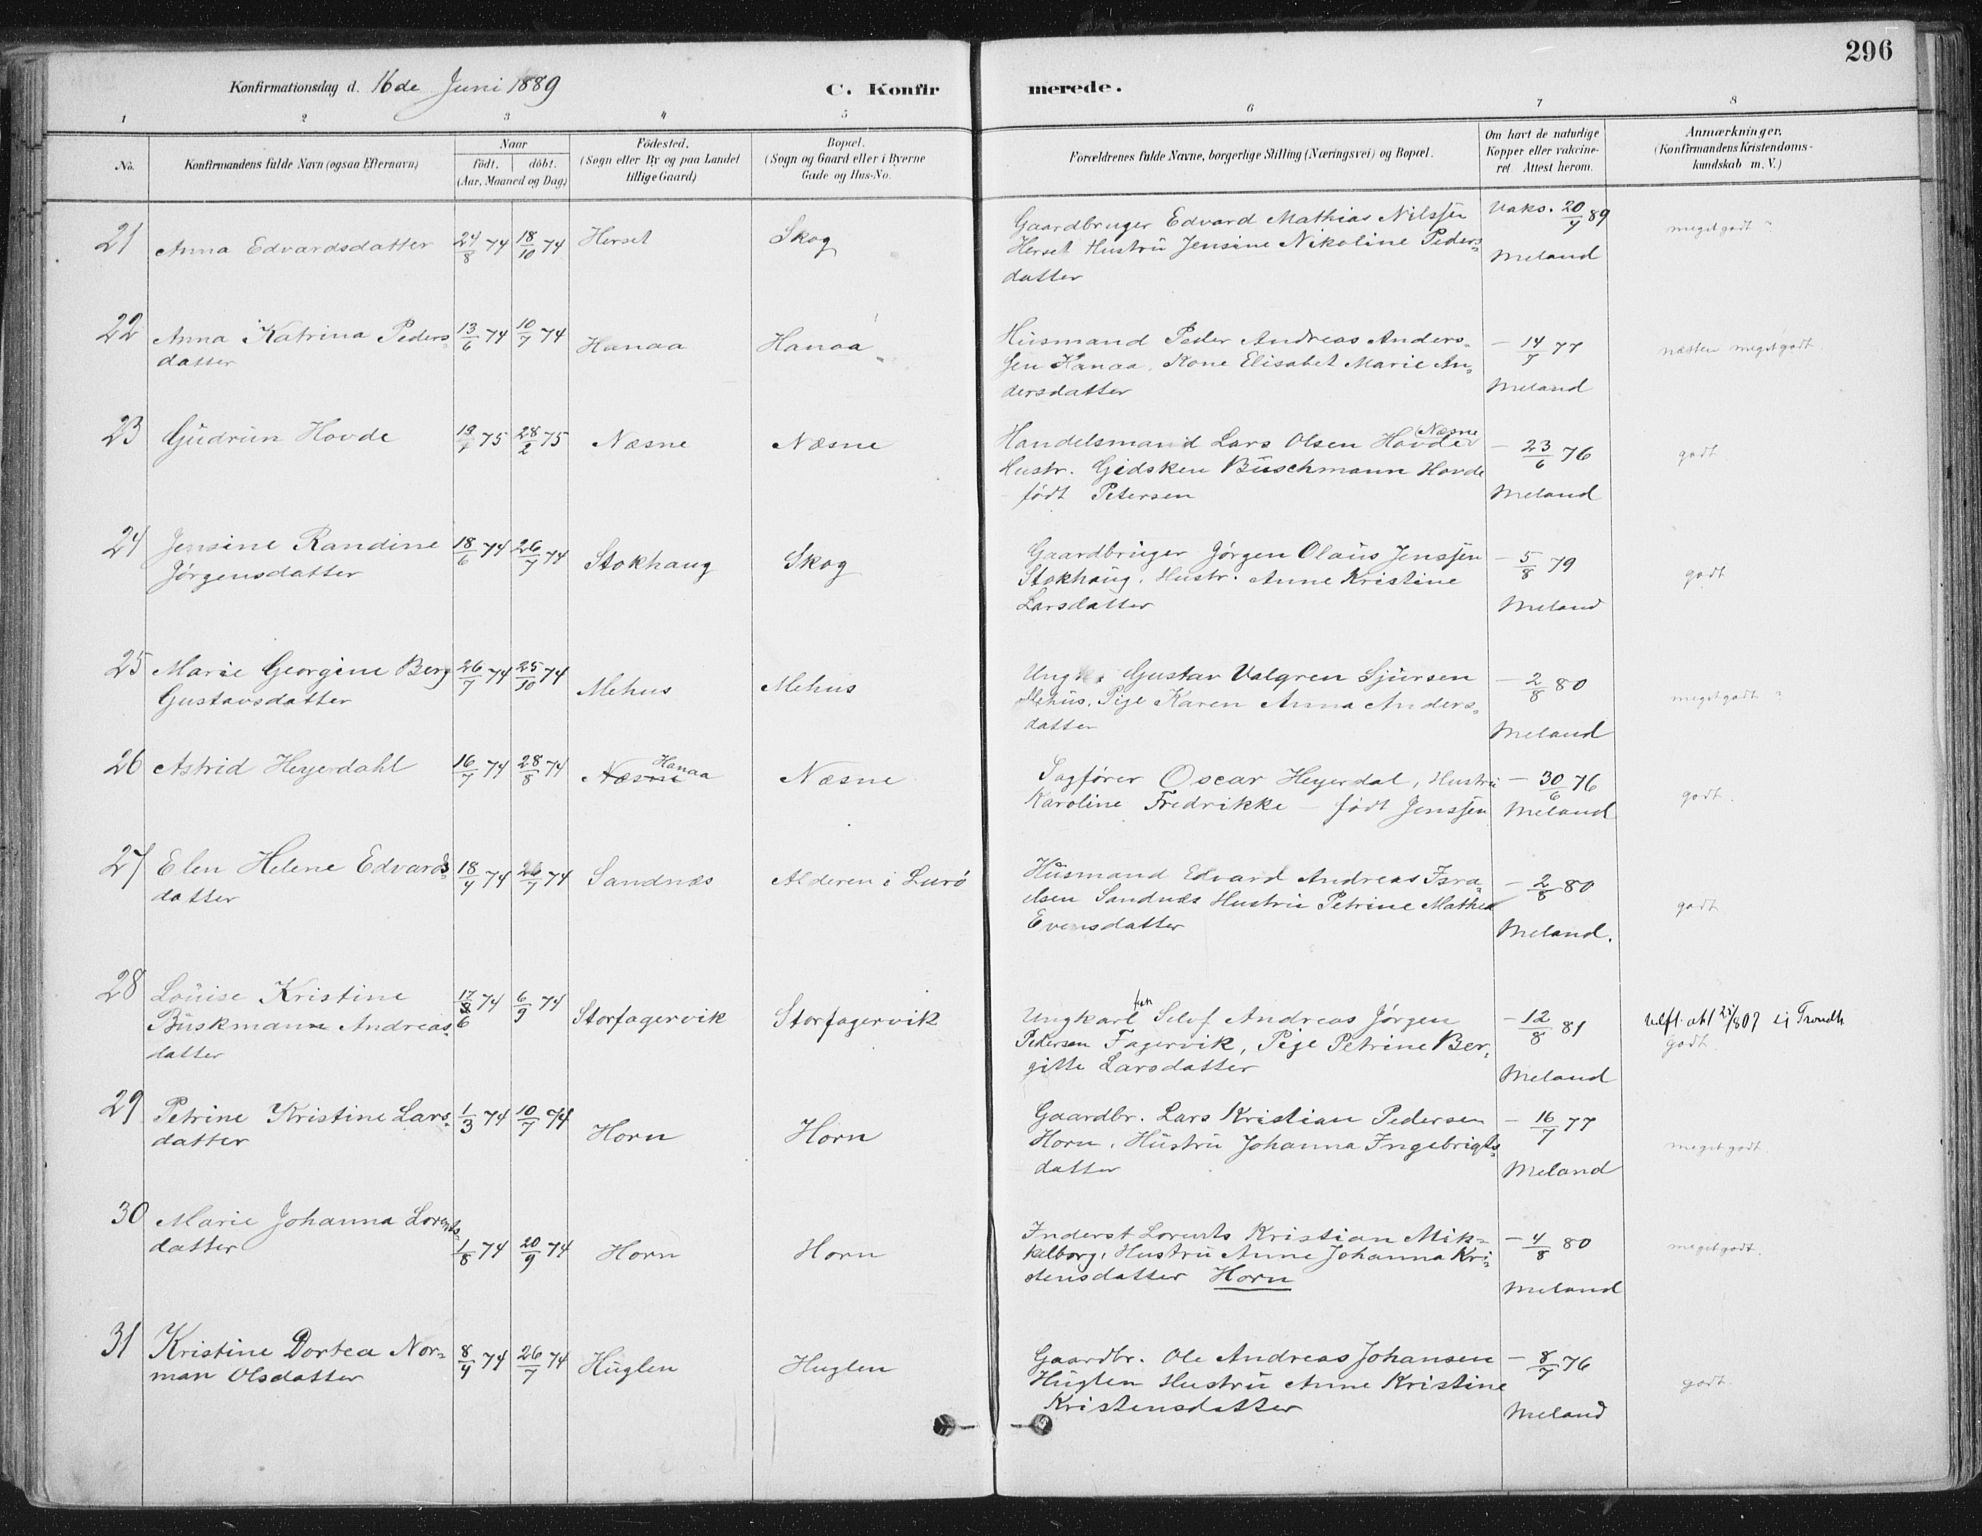 296
Konfirmationsdag d. 16de Juni 1889 C. Konfir merede.
1 2 3 4 5 6 7 8
No. Konfirmandens fulde Navn (ogsaa Efternavn) Naar födt. döbt. (Aar, Maaned og Dag) Födested. (Sogn eller By og paa Landet tillige Gaard) Bopæl. (Sogn og Gaard eller i Byerne Gade og Hus-No. Forældrenes fulde Navne, borgerlige Stilling (Næringsvei) og Bopæl. Om havt de naturlige Kopper eller vakcineret. Attest herom. Anmærkninger. (Konfirmandens Kristendomskundskab m. V.)
21 Anna Edvardsdatter 24/8 74 18/10 74 Herset Skog Gaardbruger Edvard Mathias Nilssen Vaks. 20/4 89 meget godt
Herset Hustru Jensine Nikoline Peders- Meland
datter
22 Anna Katrina Peders- 13/6 74 10/7 74 Hanaa Hanaa Husmand Peder Andreas Anders- – 14/7 77 næsten meget godt.
datter sen Hanaa, Kone Elisabet Marie An-
dersdatter Meland
23 Gudrun Hovde 19/1 75 28/2 75 Næsne Næsne Handelsmand Lars Olsen Hovde Næsne – 23/6 76 godt.
Hustr. Gidsken Büschmann Hovde
født Petersen Meland
24 Jensine Randine 18/6 74 26/7 74 Stokhaug Skog Gaardbruger Jørgen Olaus Jenssen – 5/8 79 godt
Jørgensdatter Stokhaug, Hustr. Anne Kristine
Larsdatter Meland
25 Marie Georgine Berg 26/7 74 25/10 74 Mehus Mehus Ungk. Gustav Valgren Sjursen – 2/8 80 meget godt
Gustavsdatter Mehus, Pige Karen Anna Anders-
datter Meland
26 Astrid Heyerdahl 16/7 74 28/8 74 Næsne Hanaa Næsne Sagfører Oscar Heyerdal, Hustru – 30/6 76 godt.
Karoline Fredrikke – født Jenssen Meland
27 Elen Helene Edvards- 18/4 74 26/7 74 Sandnæs Alderen i Lurö Husmand Edvard Andreas Isra- – 2/8 80 godt
datter elsen Sandnæs Hustru Petrine Mathea
Evensdatter Meland.
28 Louise Kristine 17/6 74 6/9 74 Storfagervik Storfagervik Ungkarl Selvf Andreas Jørgen – 12/8 81
Buskmann Andreas- Pedersen Fagervik, Pige Petrine Ber- godt.
datter gitte Larsdatter Meland
29 Petrine Kristine Lars- 1/3 74 10/7 74 Horn Horn Gaardbr. Lars Kristian Pedersen – 16/7 77 meget godt.
datter Horn, Hustru Johanna Ingebrigts-
datter Meland
30 Marie Johanna Lorents- 1/8 74 20/9 74 Horn Horn Inderst Lorents Kristian Mik- – 4/8 80 meget godt.
datter kelborg, Hustru Anne Johanna Kri-
stensdatter Horn Meland
31 Kristine Dortea Nor- 8/4 74 26/7 74 Huglen Huglen Gaardbr. Ole Andreas Johansen – 8/7 76 godt.
man Olsdatter Huglen Hustru Anne Kristine
Kristensdatter Meland